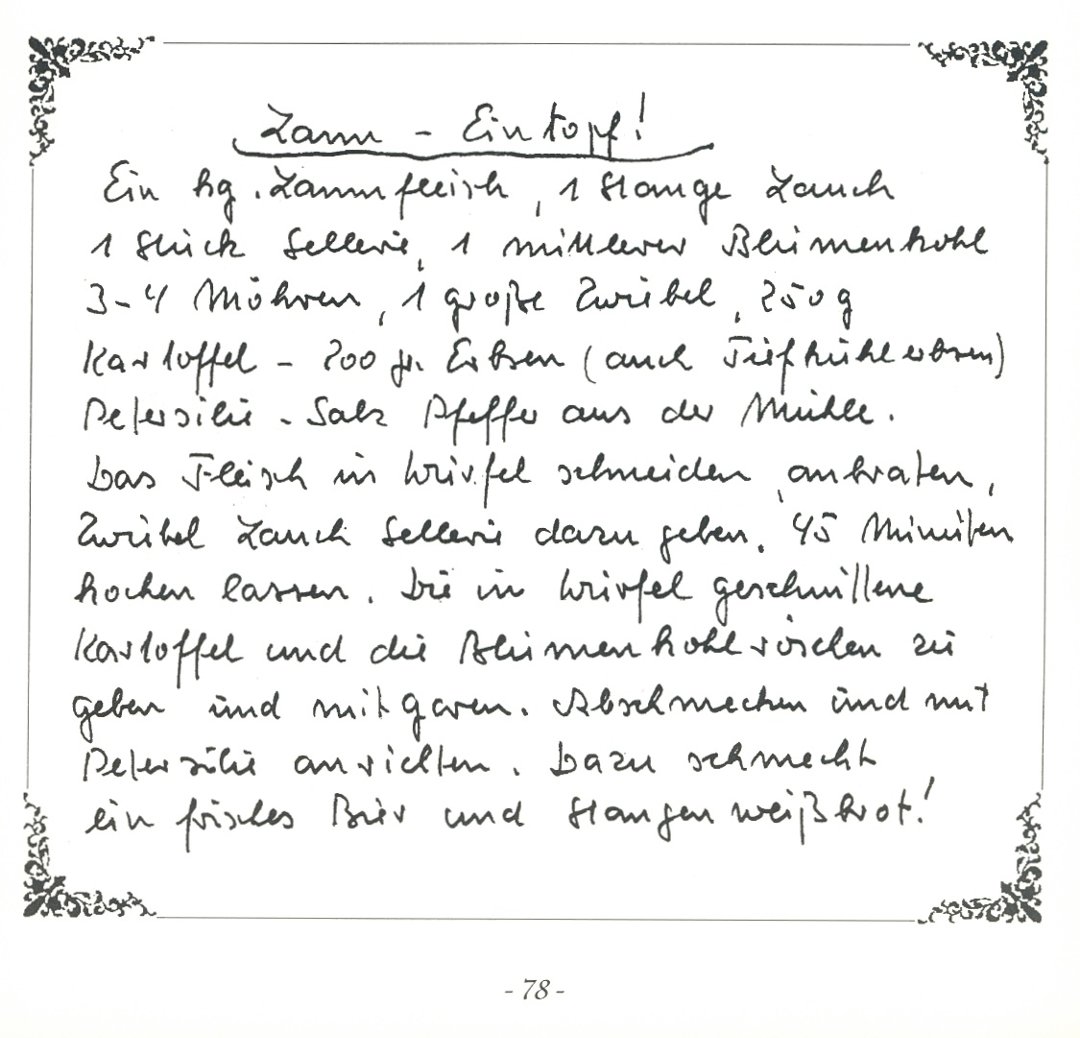 Lamm - Eintopf!
Ein kg. Lammfleisch, 1 Stange Lauch
1 Stück Sellerie, 1 mittlerer Blumenkohl
3-4 Möhren, 1 große Zwiebel, 250 g
Kartoffel - 200 gr. Erbsen (auch Tiefkühlerbsen)
Petersilie - Salz Pfeffer aus der Mühle.
Das Fleisch in Würfel schneiden, anbraten,
Zwiebel Lauch Sellerie dazu geben. 45 Minuten
kochen lassen. Die in Würfel geschnittene
Kartoffel und die Blumenkohlröschen zu
geben und mit garen. Abschmecken und mit
Petersilie anrichten. Dazu schmeckt
ein frisches Bier und Stangenweißbrot!
- 78 -